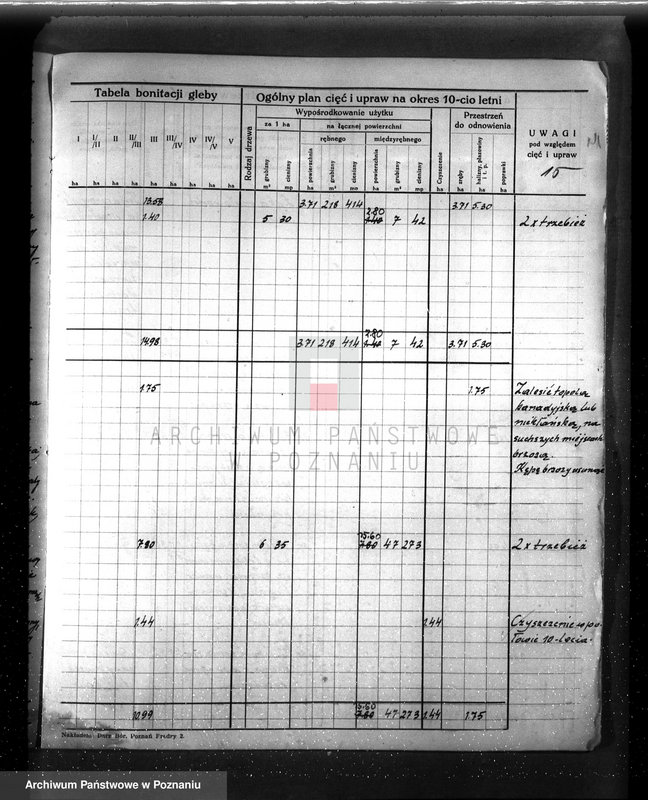 Tabela bonitacji gleby
Ogólny plan cięć i upraw na okres 10-cio letni
I I/II II II/III III III/IV IV IV/V V
ha ha ha ha ha ha ha ha ha
Rodzaj drzewa
Wypośrodkowanie użytku
za 1 ha
na łącznej powierzchni
rębnego
międzyrębnego
grubizny
m³
cienizny
mp
powierzchnia
ha
grubizny
m³
cienizny
powierzchnia
ha
grubizny
m³
cienizny
mp
Czyszczenie
ha
Przestrzeń
do odnowienia
zręby
ha
halizny, płazowiny
i t. p.
ha
poprawki
ha
UWAGI
pod względem
cięć i upraw
15
13.58 3.71 218 414 3.71 5.30
2.80
1.40 5 30 1.40 7 42 2 x trzebież
2.80
14.98 3.71 218 414 1.40 7 42 3.71 5.30
1.75 1.75 Zalesić topolą
kanadyjską lub
na
suchszych miejscach
brzozą.
Kępę brzozy
15.60
7.80 6 35 7.80 47 273 2 x trzebież
1.44 1.44 Czyszczenie w po-
łowie 10-lecia.
15.60
10.99 7.80 47 273 1.44 1.75
Nakładem: Dorz Dór. Poznań Fredry 2.
ARCHIWUM PAŃSTWOWE
W POZNANIU
Archiwum Państwowe w Poznaniu